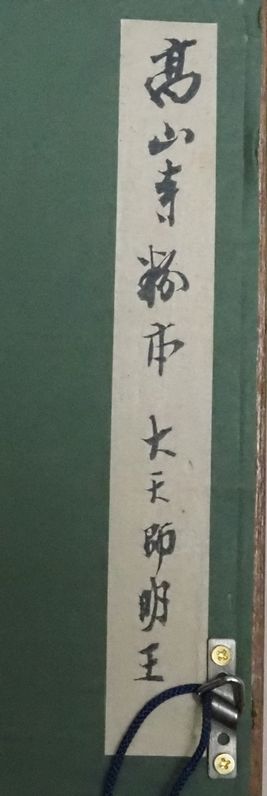 髙山寺粉本 大天師明王